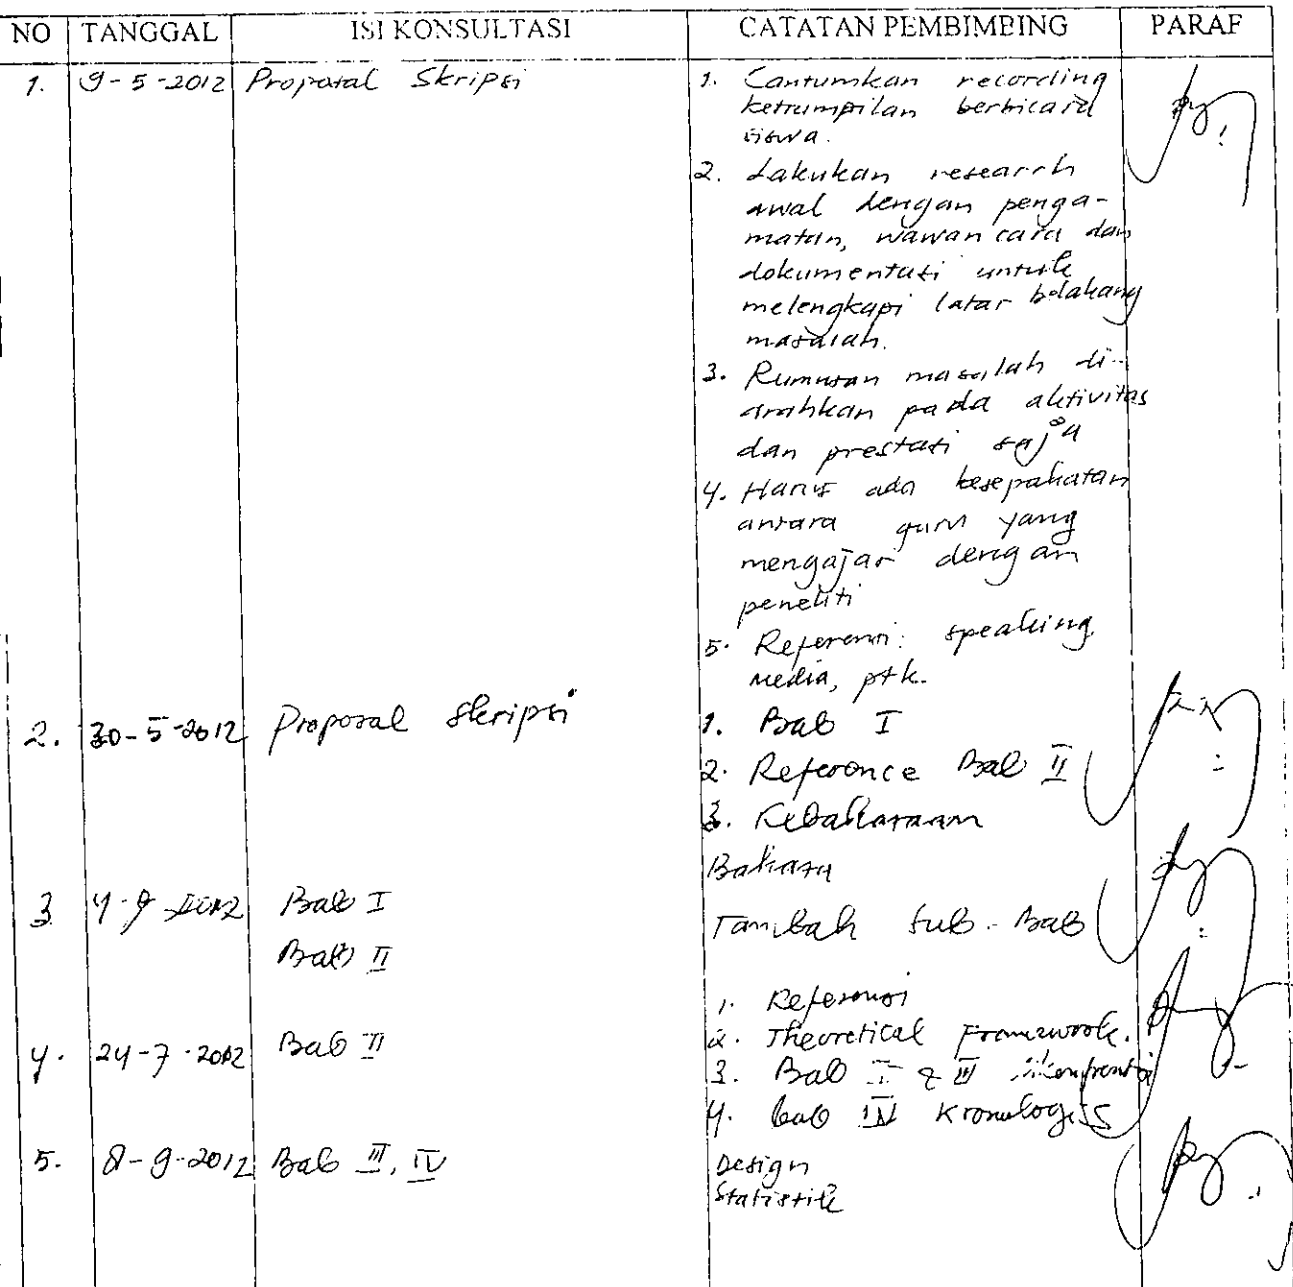 NO TANGGAL ISI KONSULTASI CATATAN PEMBIMBING PARAF
1. 9-5-2012 Proposal Skripsi 1. Cantumkan recording
ketrampilan berbicara
siswa.
2. Lakukan research
awal dengan penga-
matan, wawancara dan
dokumentasi untuk
melengkapi latar belakang
masalah.
3. Rumusan masalah di-
arahkan pada aktivitas
dan prestasi saja
4. Harus ada kesepakatan
antara guru yang
mengajar dengan
peneliti
5. Referensi: speaking,
media, ptk.
2. 30-5-2012 Proposal Skripsi 1. Bab I
2. Reference Bab II
3. Kebahasaan
Bahasa
3 4-9-2012 Bab I Tambah Sub-Bab
Bab II
1. Referensi
2. Theoretical Framework.
4. 24-7-2012 Bab II
3. Bab I & III
4. bab IV Kronologis
5. 8-9-2012 Bab III, IV Design
Statistik